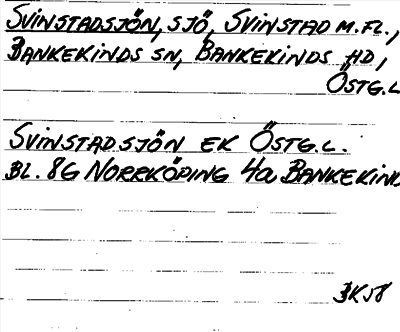 SVINSTADSJÖN, SJÖ, SVINSTAD M.FL.,
BANKEKINDS SN, BANKEKINDS HD,
ÖSTG.L
SVINSTADSJÖN EK ÖSTG.L.
BL. 8G NORRKÖPING 4a BANKEKIND